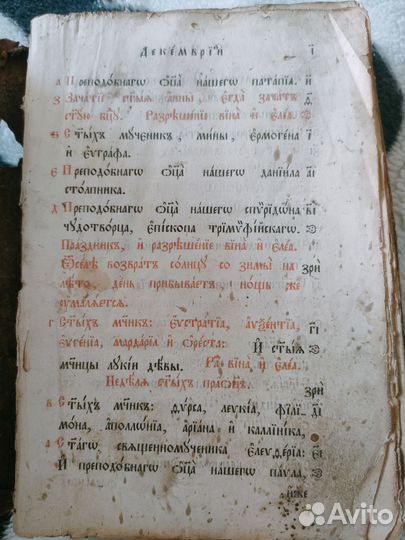 Декемврїй і
а Преподобнагѡ ѻц҃а нашегѡ патапїа. и҃
з Зачатїе ст҃ыѧ анны, єгда зачатъ ѳ҃
ст҃ую бц҃у. Разрѣшенїе вїна и҆ єлеа.
ѕ Ст҃ыхъ мученикъ, мины, єрмогена і҃
и҆ єѵграфа.
є Преподо́бнагѡ ѻц҃а нашегѡ данїила а҃і
столпника.
д Преподо́бнагѡ ѻц҃а нашегѡ спѷрїдѡна в҃і
чудотво́рца, єпископа трїмѷфїйскагѡ.
Праздникъ, и҆ разрѣшенїе вїна и҆ єлеа.
Ѿселѣ возвратъ солнцу со зимы на зри
лѣто, день прибываетъ нощь же
умаляется.
г Ст҃ыхъ мч҃нкъ: єѵстратїа, аѵѯентїа, г҃і
єѵгенїа, мардарїа и҆ ѻреста: И҆ ст҃ыѧ
мч҃ницы лукїи дѣвы. Ра вїна, и҆ єлеа.
Недѣлѧ ст҃ыхъ праѻц҃ъ. зри
в Ст҃ыхъ мч҃нкъ: ѳѵрса, леѵкїа, фїлї- д҃і
мона, аполлѡнїа, арїана и҆ каллїника,
а Ст҃агѡ свѧщенномученика єлеѵѳерїа: є҃і
И҆ преподо́бнагѡ ѻц҃а нашегѡ паѵла,
иже
Avito